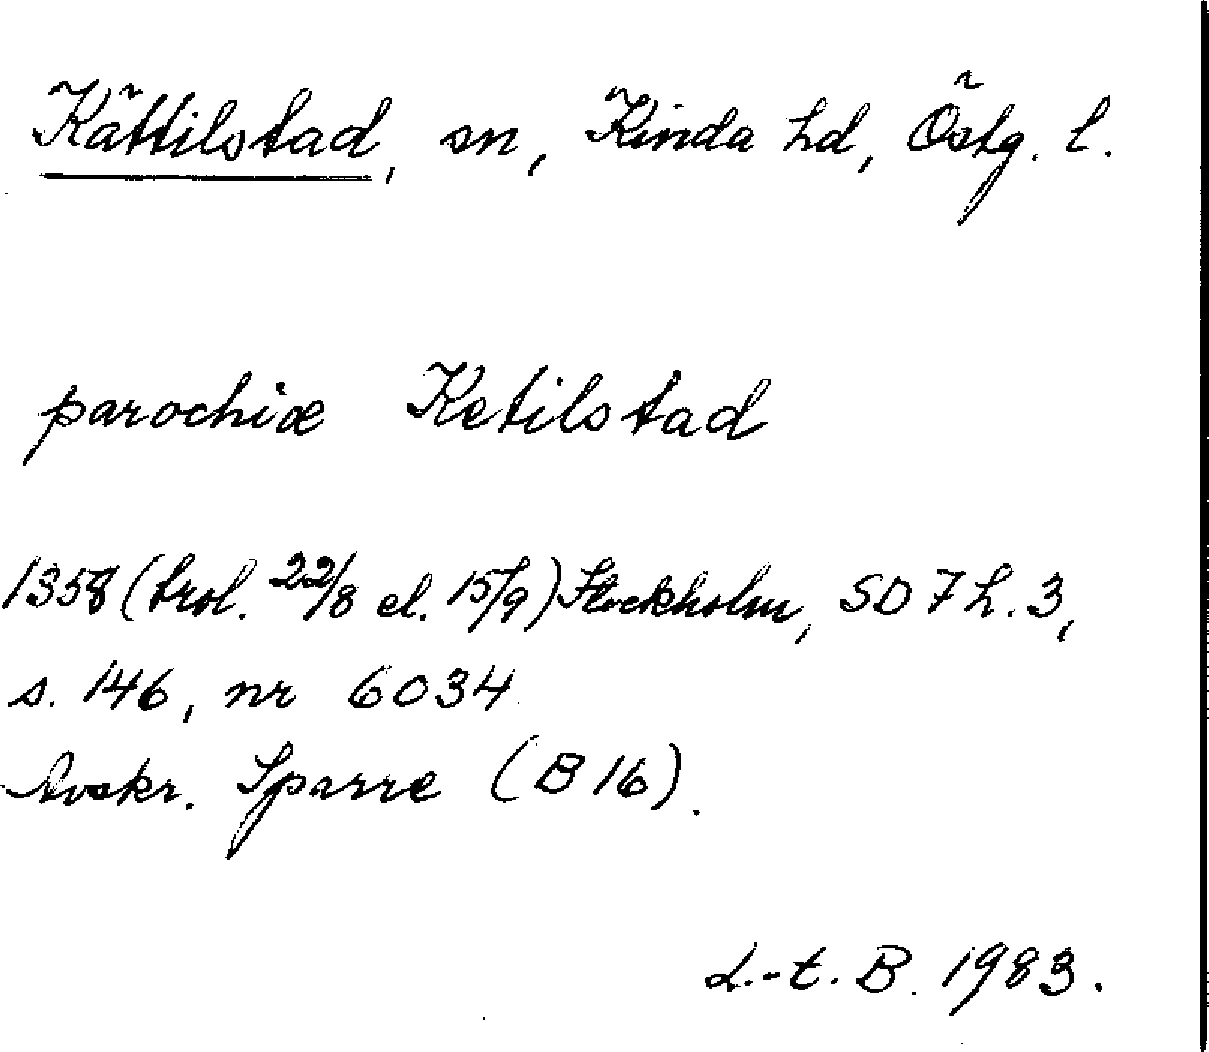 Kättilstad, sn, Kinda hd, Östg. l.
parochiæ Ketilstad
1358 (trol. 22/8 el. 15/9) Stockholm, SD 7 h. 3,
s. 146, nr 6034
Avskr. Sparre (B 16).
L.-t. B. 1983.